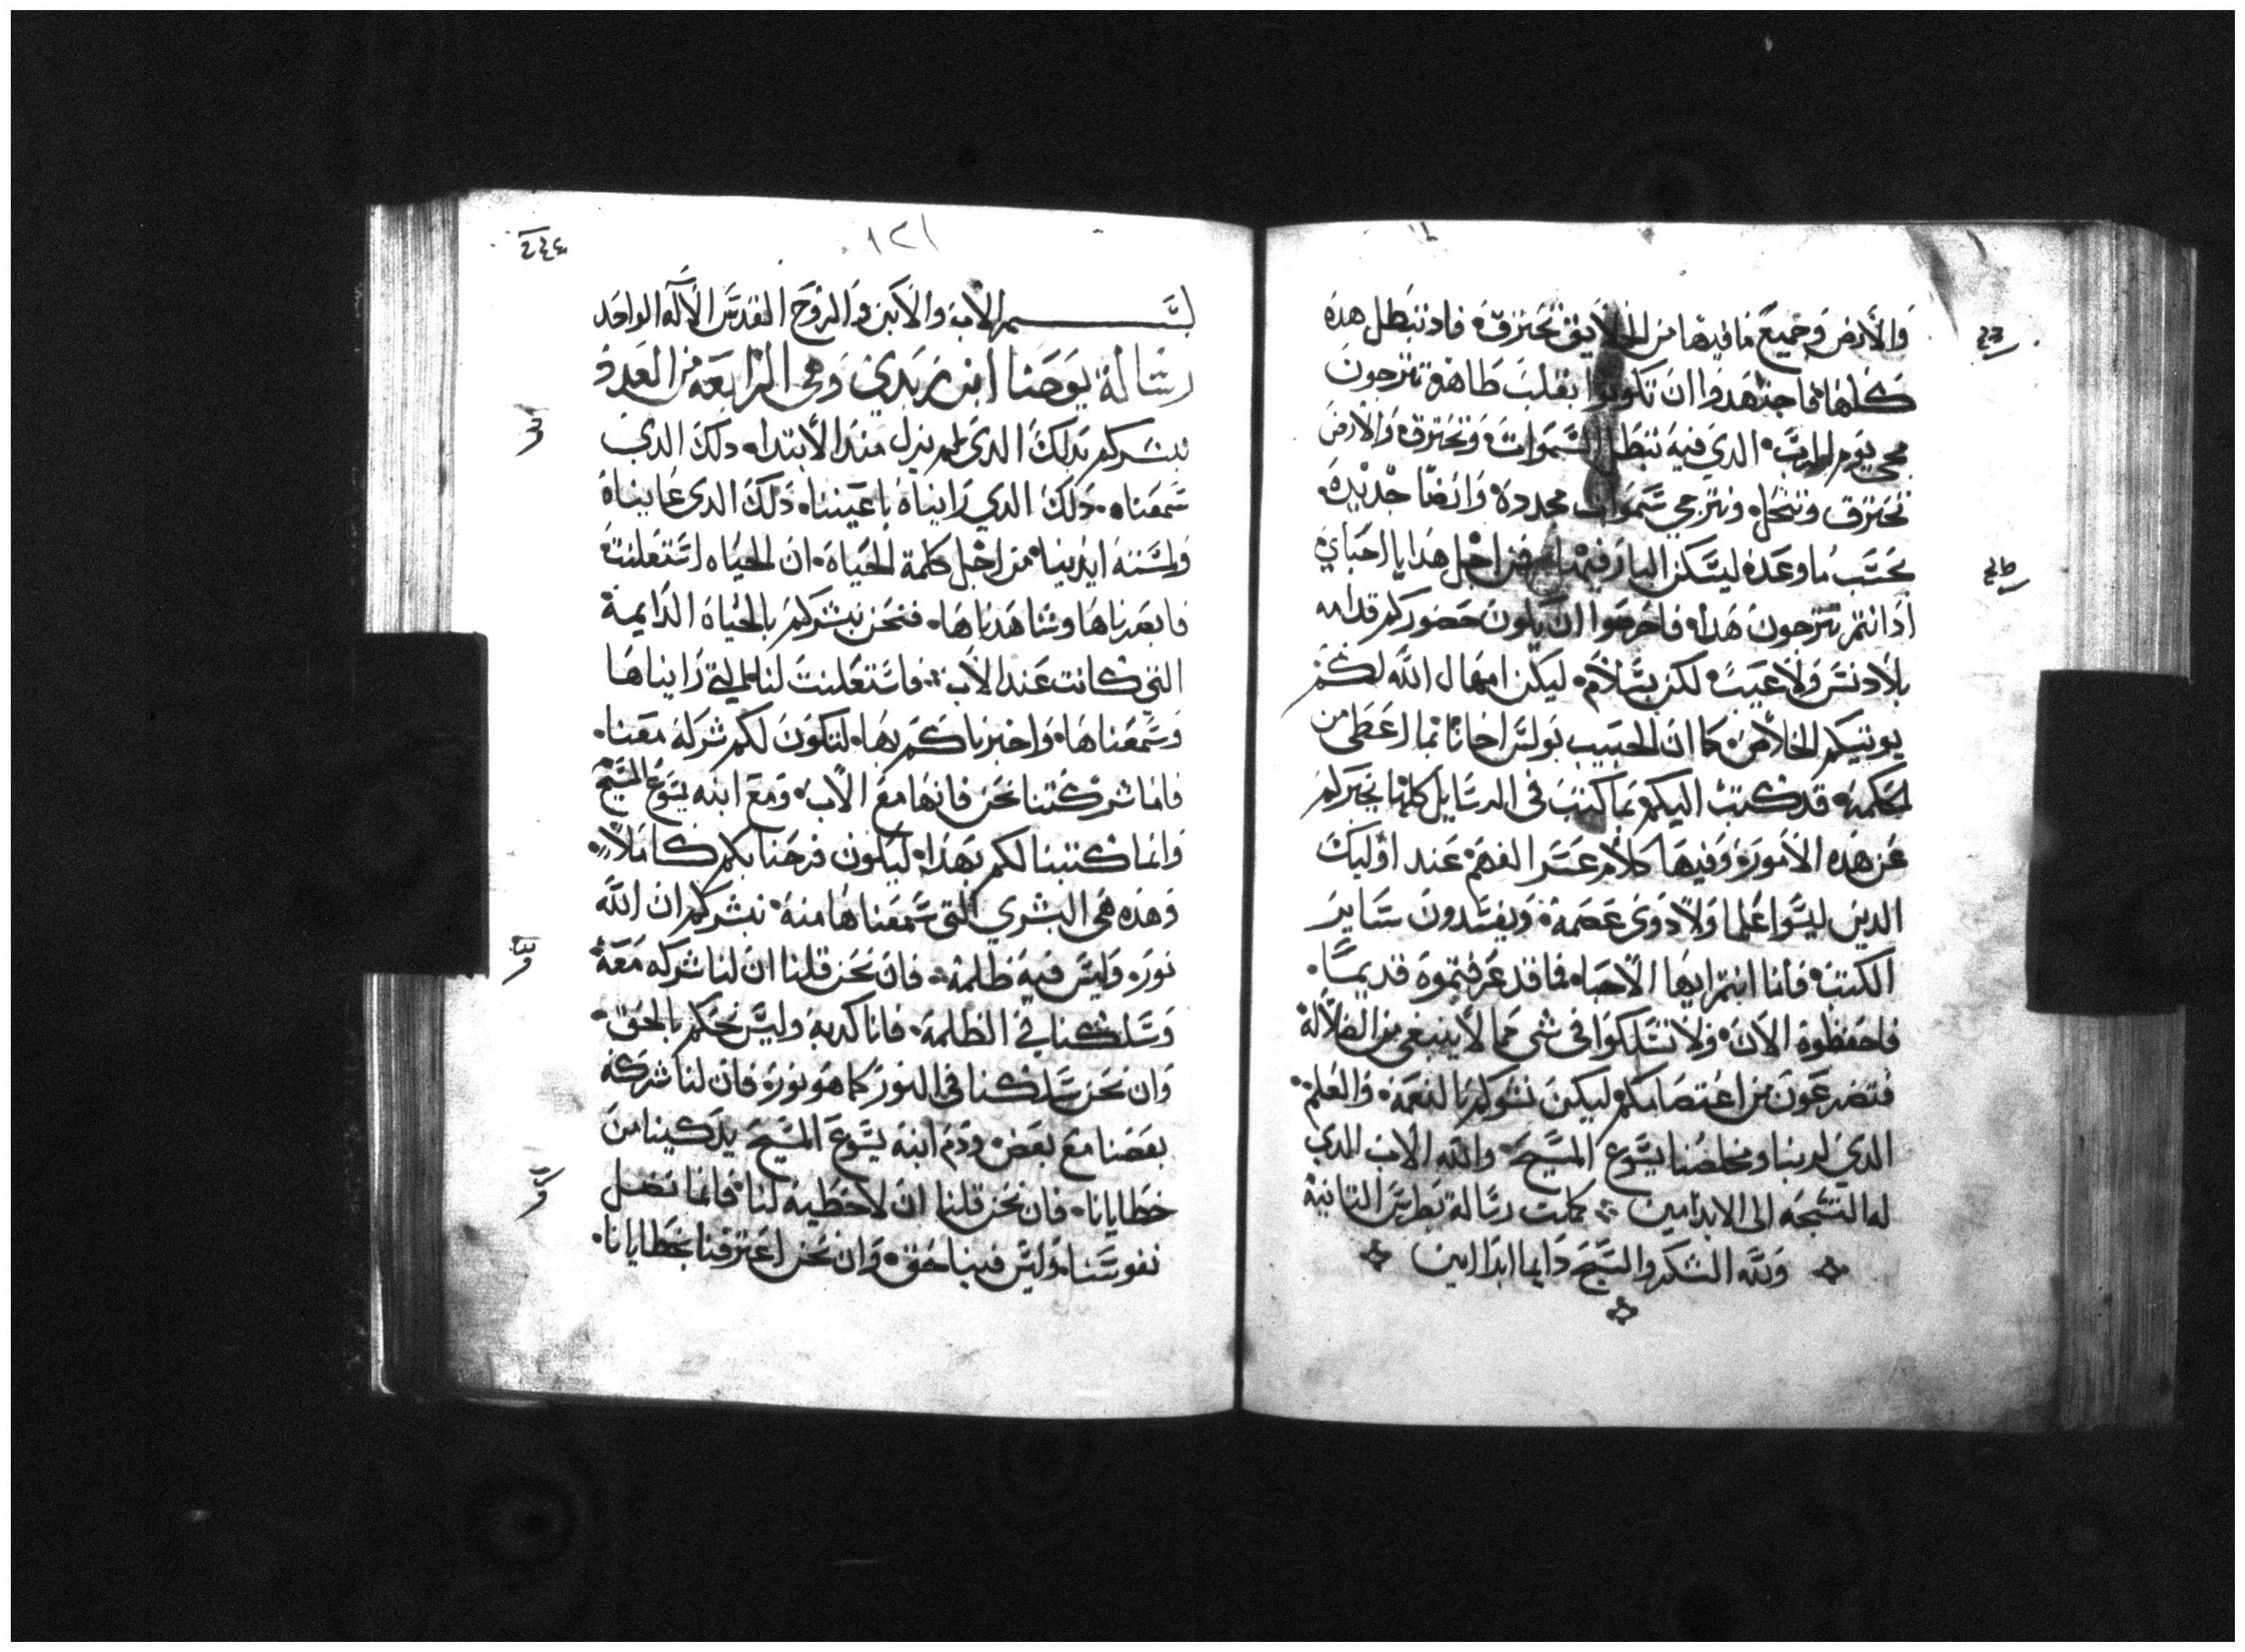 والارض وجميع ما فيها من الخلايق تحترق فاد تبطل هده
كلها فاجتهدوا ان تكونوا بقلب طاهر تترجون
مجى يوم الرب الدي فيه تبطل السموات وتحترق والارض
تحترق وتنحل ونترجي سموات مجدده وايضا جديده
بحسب ما وعده ليسكن البار فيها من اجل هدا يا احباي
اد انتم تترجون هدا فاحرصوا ان يكون حضوركم قدامه
بلا دنس ولا عيب لكن بسلام ليكن امهال الله لكم
يوتيكم الخلاص كما ان الحبيب بولس اخانا بما اعطى من
الحكمه قد كتب اليكم بما كتب في الرسايل كلها يخبركم
عن هده الامور وفيها كلام عسر الفهم عند اوليك
الدين ليسوا علما ولا دوى عصمة ويفسدون ساير
الكتب فاما انتم ايها الاحبا فما قد عرفتموه قديما
فاحفظوه الان ولا تسلكوا في شى مما لا ينبغي من الضلالة
فتضرعون من اعتصامكم ليكن نشوكم بالنعمه والعلم
الدي لربنا ومخلصنا يسوع المسيح والله الاب الدي
له التسبحه الى الابد امين كملت رسالة بطرس التانية
ولله الشكر والسبح دايما ابدا امين
٢٤٤
١٢١
بسم الاب والابن والروح القدس الاله الواحد
رسالة يوحنا ابن زبدي وهي الرابعه من العدد
نبشركم بدلك الدي لم يزل مند الابتدا دلك الدي
سمعناه دلك الدي رايناه باعيننا دلك الدى عايناه
ولمسته ايدينا من اجل كلمة الحياه ان الحياه استعلنت
فابصرناها وشاهدناها فنحن نبشركم بالحياه الدايمة
التي كانت عند الاب فاستعلنت لنا التي رايناها
وسمعناها واخبرناكم بها لتكون لكم شركه معنا
فاما شركتنا نحن فانها مع الاب ومع ابنه يسوع المسيح
وانما كتبنا لكم بهدا ليكون فرحنا بكم كاملا
وهده هي البشري التي سمعناها منه نبشركم ان الله
نور وليس فيه ظلمة فان نحن قلنا ان لنا شركه معه
وسلكنا في الظلمة فانا كدبه وليس نحكم بالحق
وان نحن سلكنا في النور كما هو نور فان لنا شركه
بعضنا مع بعض ودم ابنه يسوع المسيح يدكينا من
خطايانا فان نحن قلنا ان لا خطيه لنا فانما نضل
نفوسنا وليس فينا حق وان نحن اعترفنا بخطايانا